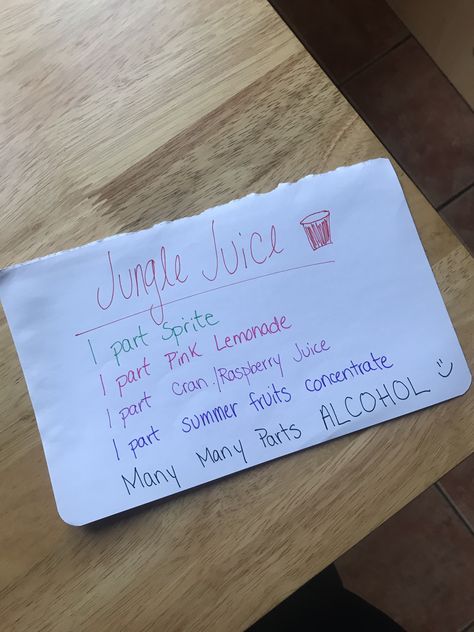 Jungle Juice
1 part Sprite
1 part Pink Lemonade
1 part Cran./Raspberry Juice
1 part summer fruits concentrate
Many Many Parts ALCOHOL :)